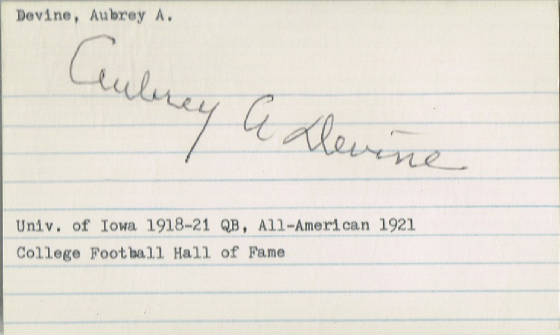 Devine, Aubrey A.
Aubrey A Devine
Univ. of Iowa 1918-21 QB, All-American 1921
College Football Hall of Fame